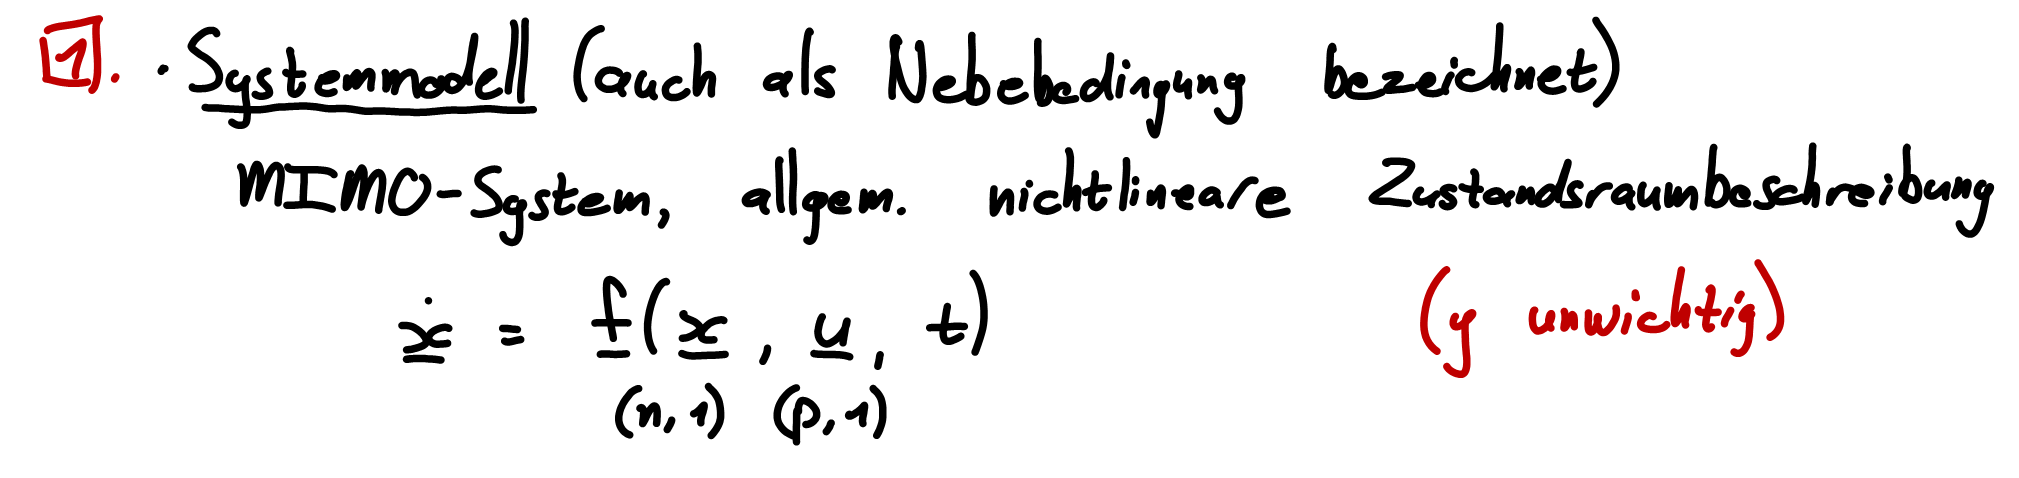 1. · Systemmodell (auch als Nebebedingung bezeichnet)
MIMO-System, allgem. nichtlineare Zustandsraumbeschreibung
ẋ = f(x, u, t) (y unwichtig)
(n,1) (p,1)